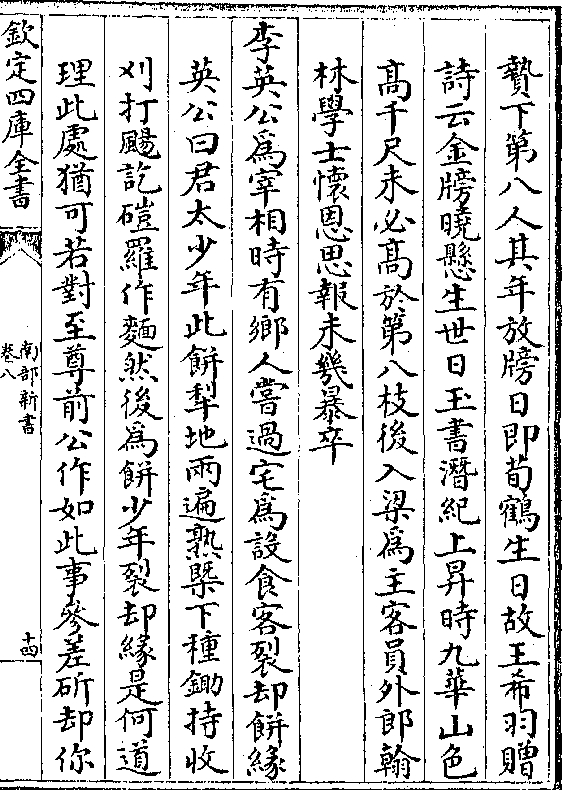 贄下第八人其年放牓日即荀鶴生日故王希羽贈
詩云金牓曉懸生世日玉書潛紀上昇時九華山色
髙千尺未必髙於第八枝後入梁為主客員外郎翰
林學士懷恩思報未幾暴卒
李英公為宰相時有鄉人嘗過宅為設食客裂却餅緣
英公曰君太少年此餅犁地兩遍熟槩下種鋤持收
刈打颺訖磑羅作麵然後為餅少年裂却緣是何道
理此處猶可若對至尊前公作如此事參差斫却你
欽定四庫全書
南部新書
卷八
十四